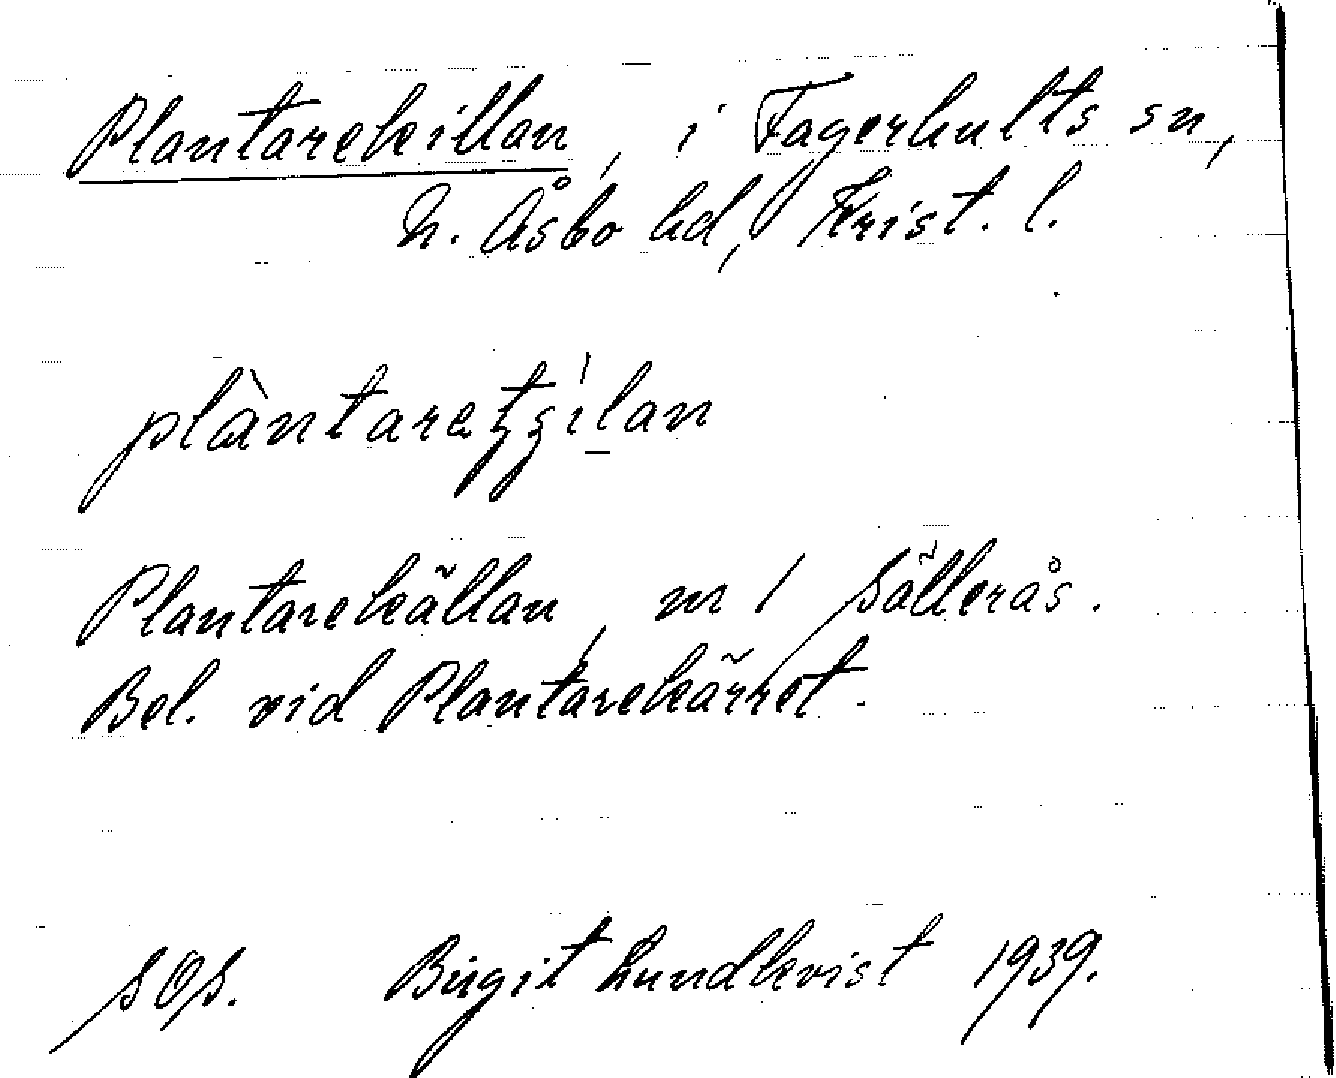 Plantarekillan, i Fagerhults sn,
N. Åsbo hd, Krist. l.
plàntaretʒílan
Plantarekällan, nr 1 Sällerås.
Bel. vid Plantarekärret.
SOS. Birgit Lundkvist 1939.